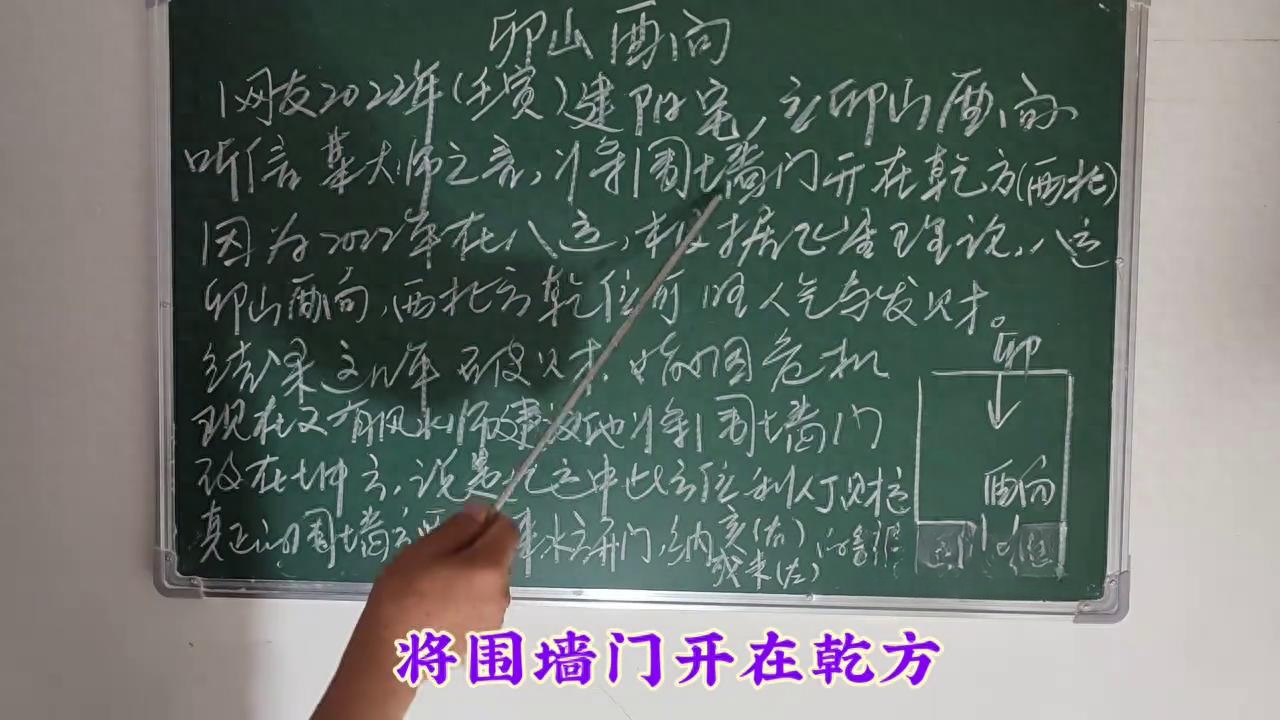 卯山酉向
1网友2022年(壬寅)建阳宅,立卯山酉向
听信某大师之言,将围墙门开在乾方(西北)
因为2022年在八运,根据飞星理论,八运
卯山酉向,西北方乾位可旺人气与发财。
结果这几年 破财
危机
现在又有风水师建议他将围墙门
改在坤方,说是九运中此方位利人丁财
真正的围墙 水方开门,纳亥(右)
或未(左)
卯
酉向
将围墙门开在乾方